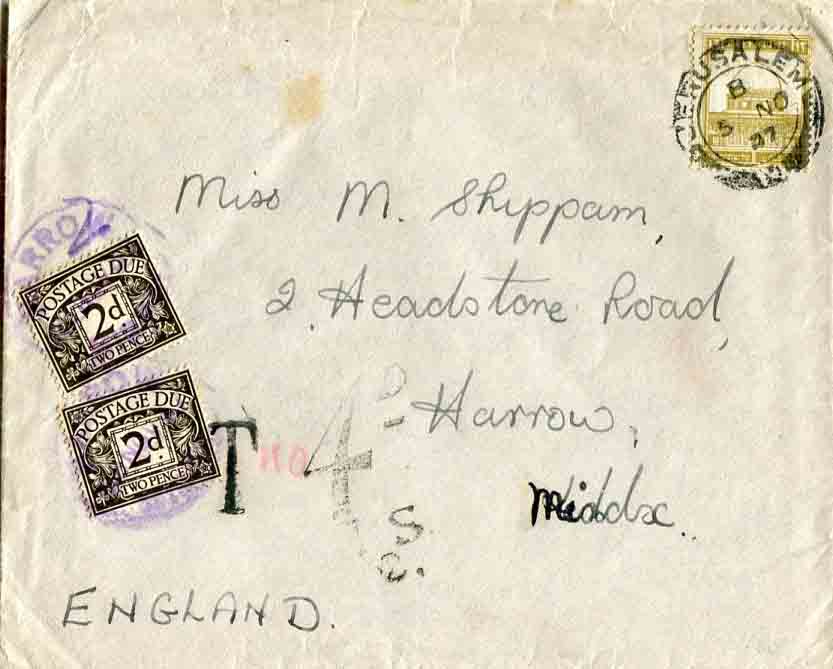 JERUSALEM
B
5 NO
37
Miss M. Shippam,
2. Headstone Road,
Harrow,
Middx.
ENGLAND.
HARROW
POSTAGE DUE
2d.
TWO PENCE
POSTAGE DUE
2d.
TWO PENCE
T
4D
S.